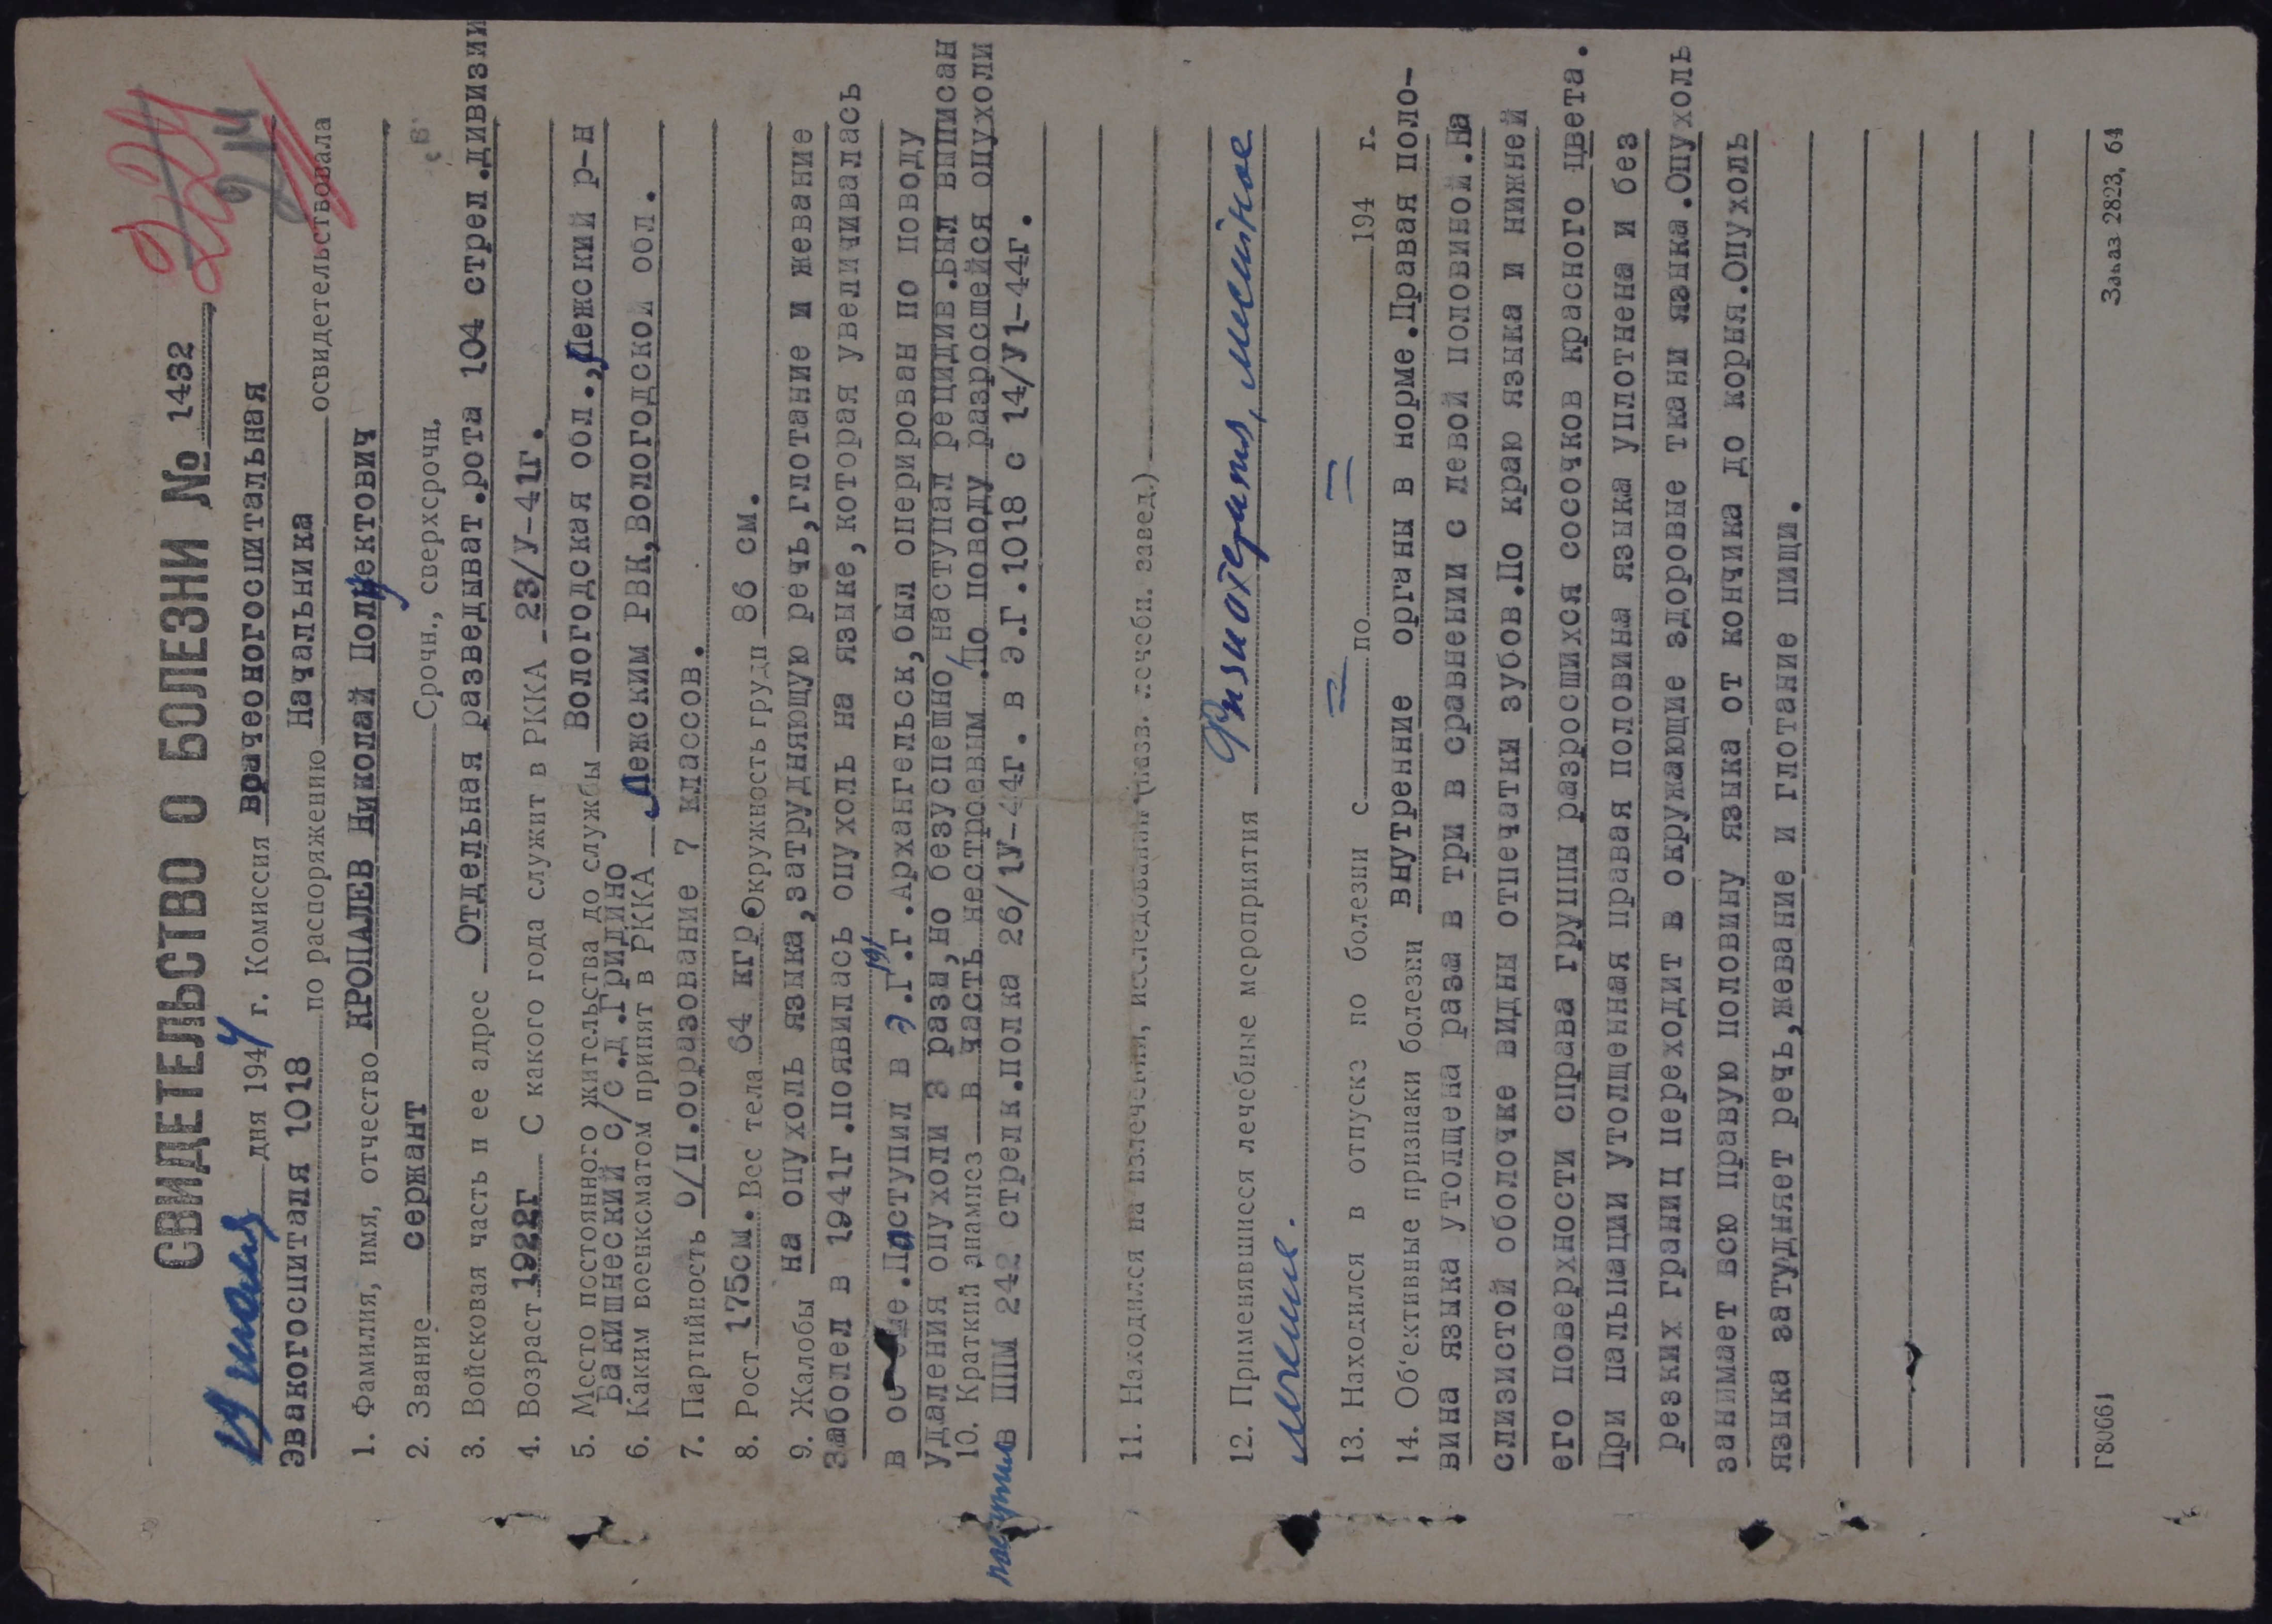 224
214
СВИДЕТЕЛЬСТВО О БОЛЕЗНИ № 1432
19 июля дня 1944 г. Комиссия врачебногоспитальная
Эвакогоспиталя 1018 по распоряжению Начальника освидетельствовала
1. Фамилия, имя, отчество КРОПАЛЕВ Николай Полуектович
2. Звание сержант Срочн., сверхсрочн.
3. Войсковая часть и ее адрес Отдельная разведыват.рота 104 стрел.дивизии
4. Возраст 1922г С какого года служит в РККА 23/У-41г.
5. Место постоянного жительства до службы Вологодская обл.,Лежский р-н
Бакишнеский с/с.д.Гридино
6. Каким военкоматом принят в РККА Лежским РВК,Вологодской обл.
7. Партийность б/п.образование 7 классов.
8. Рост 175см. Вес тела 64 кгр. Окружность груди 86 см.
9. Жалобы на опухоль языка,затрудняющую речь,глотание и жевание
Заболел в 1941г.появилась опухоль на языке,которая увеличивалась
в об ме.Поступил в Э.Г. г.Архангельск,был оперирован по поводу
удаления опухоли 3 раза,но безуспешно/наступал рецидив.Был выписан
10. Краткий анамнез в часть нестроевым.По поводу разросшейся опухоли
поступил в ППМ 242 стрелк.полка 26/1У-44г. в Э.Г.1018 с 14/У1-44г.
11. Находился на излечении, исследовании (назв. лечебн. завед.)
12. Применявшиеся лечебные мероприятия Физиотерапия, местное
лечение.
13. Находился в отпуске по болезни с = по = 194 г.
14. Об'ективные признаки болезни внутренние органы в норме.Правая поло-
вина языка утолщена раза в три в сравнении с левой половиной.На
слизистой оболочке видны отпечатки зубов.По краю языка и нижней
его поверхности справа группы разросшихся сосочков красного цвета.
При пальпации утолщенная правая половина языка уплотнена и без
резких границ переходит в окружающие здоровые ткани языка.Опухоль
занимает всю правую половину языка от кончика до корня.Опухоль
языка затудняет речь,жевание и глотание пищи.
Г80661
Заказ 2823, 64